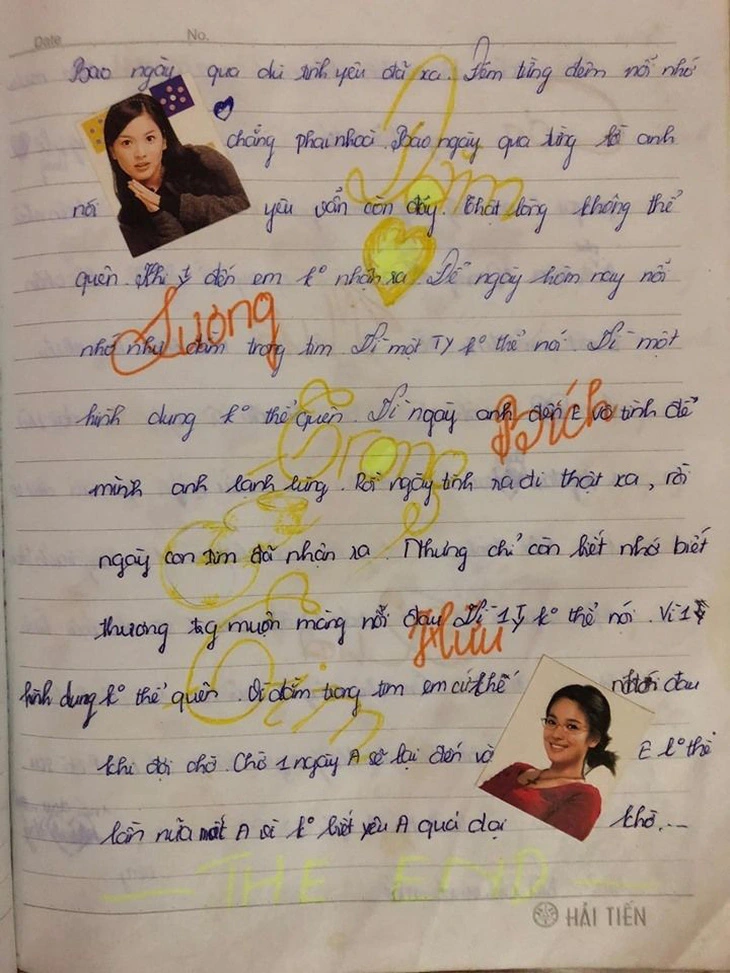 Date No.
Bao ngày qua dù tình yêu đã xa. Đêm từng đêm nỗi nhớ
chẳng phai nhoài. Bao ngày qua từng lời anh
nói yêu vẫn còn đấy. Thật lòng không thể
quên. Khi ty đến em ko nhận ra. Để ngày hôm nay nỗi
nhớ như đâm trong tim. Vì một TY ko thể nói. Vì một
hình dung ko thể quên. Vì ngày anh đến E vô tình để
mình anh lạnh lùng. Rồi ngày tình ra đi thật xa, rồi
ngày con tim đã nhận ra. Nhưng chỉ còn biết nhớ biết
thương tg muộn màng nỗi đau. Vì 1 Ty ko thể nói. Vì 1
hình dung ko thể quên. Vì đắm trong tim em cứ thế nhói đau
khi đợi chờ. Chờ 1 ngày A sẽ lại đến và E ko thể
lần nữa mất A vì ko biết yêu A quá dại khờ...
Lượng
Bích
Hữu
Trong
THE END
HẢI TIẾN